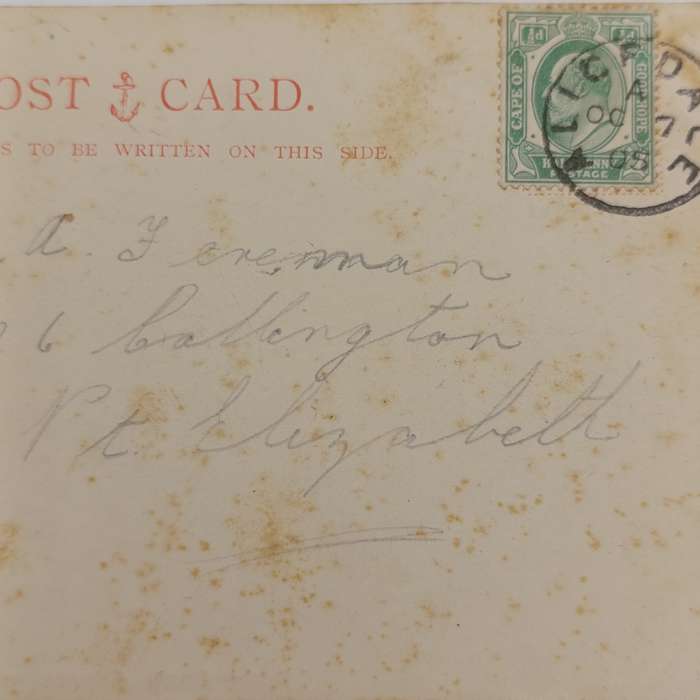 OST CARD.
S TO BE WRITTEN ON THIS SIDE.
CAPE OF GOOD HOPE
½d ½d
HALFPENNY
POSTAGE
ALICEDALE
A
OC 7
08
A.
6 Collington
Pt. Elizabeth